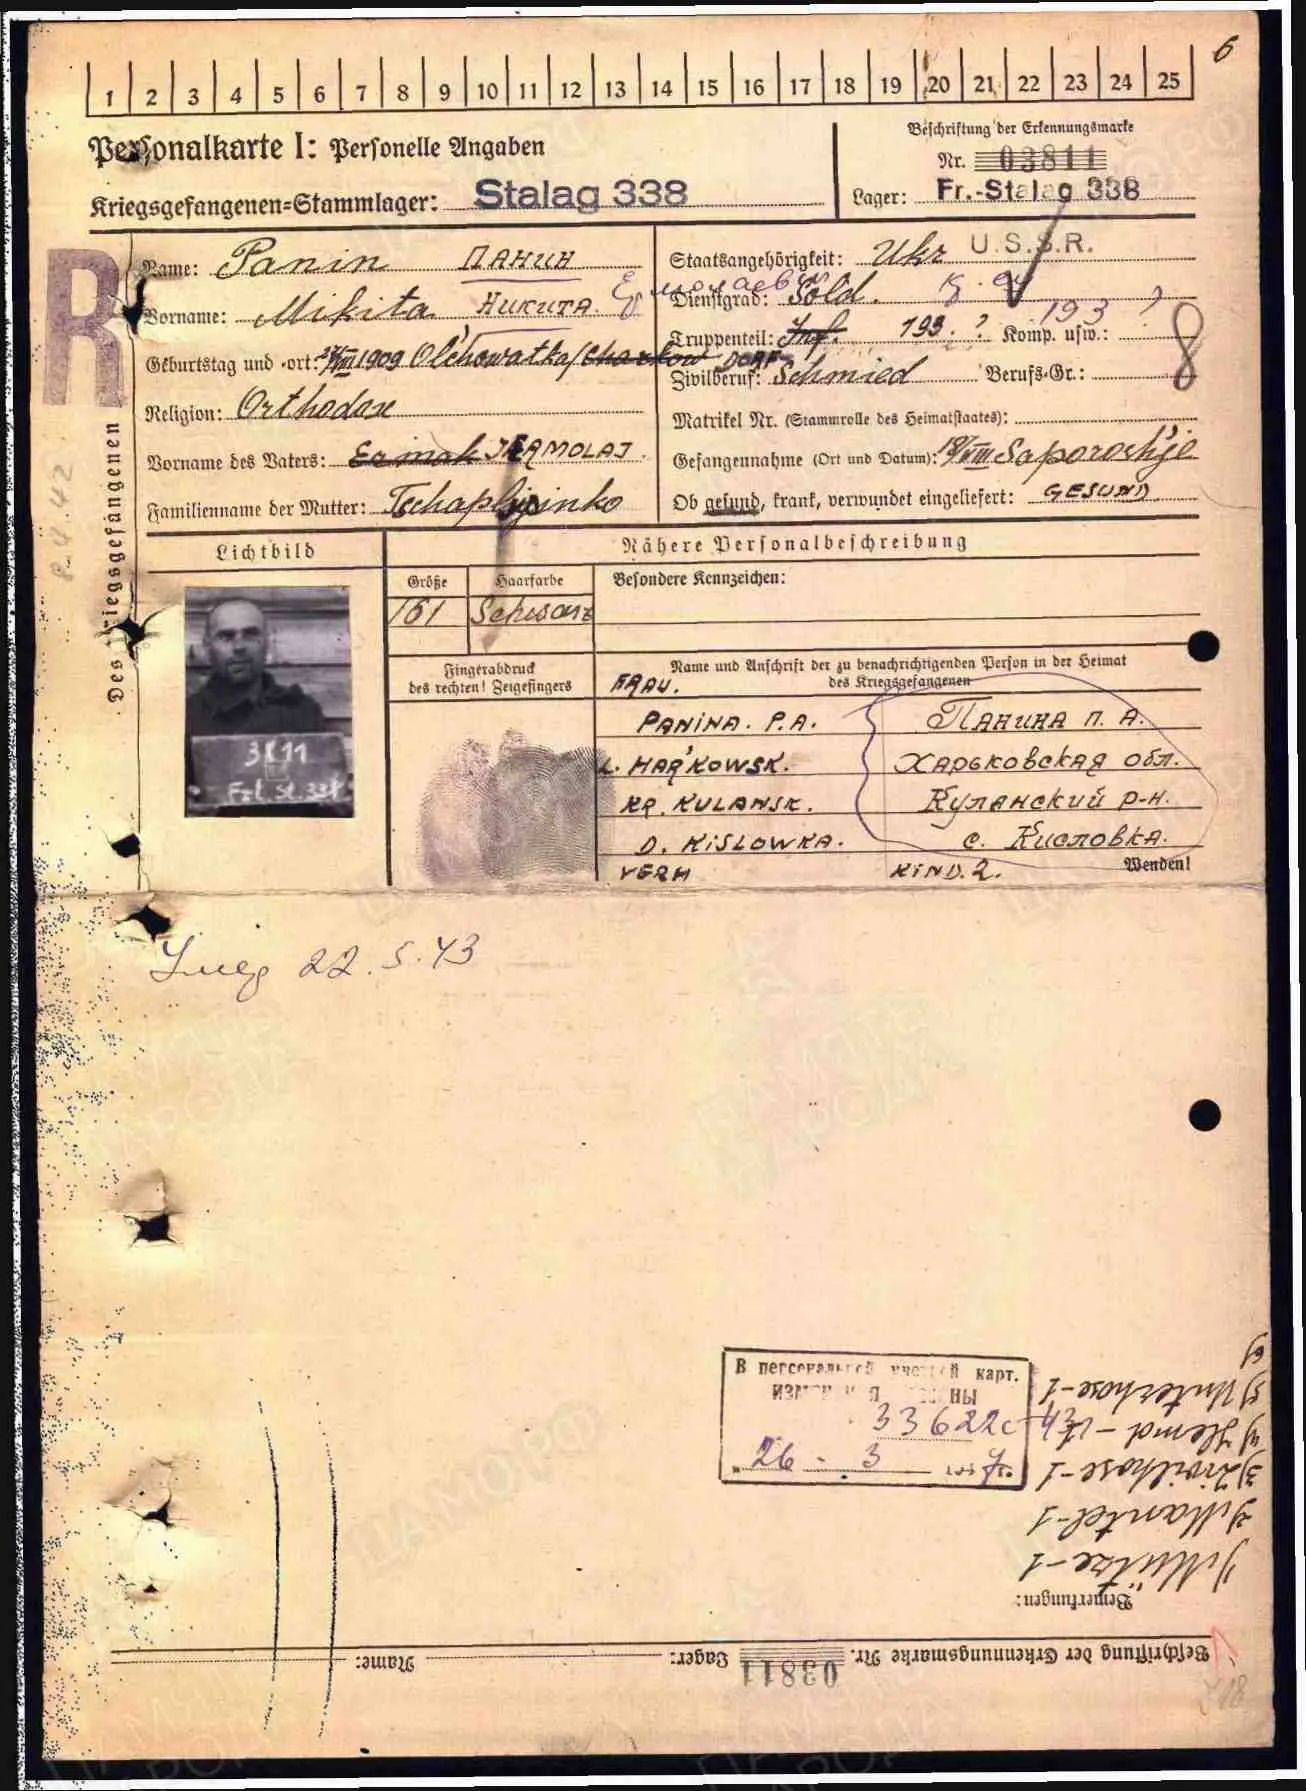 6
1 2 3 4 5 6 7 8 9 10 11 12 13 14 15 16 17 18 19 20 21 22 23 24 25
Personalkarte I: Personelle Angaben
Kriegsgefangenen=Stammlager: Stalag 338
Beschriftung der Erkennungsmarke
Nr. 03811
Lager: Fr.-Stalag 338
R
Des Kriegsgefangenen
Name: Panin ПАНИН
Vorname: Mikita НИКИТА. Ермолаевич
Geburtstag und -ort: VIII 1909 Olchowatka/Charkow DORF
Religion: Orthodox
Vorname des Vaters: Ermak JERMOLAJ.
Familienname der Mutter:
Staatsangehörigkeit: Ukr U.S.S.R.
Dienstgrad: Sold.
Truppenteil: Inf. 193. ? Komp. usw.: 193 ?
Zivilberuf: Schmied Berufs-Gr.:
8
Matrikel Nr. (Stammrolle des Heimatstaates):
Gefangennahme (Ort und Datum): VIII Saporoshje
Ob gesund, krank, verwundet eingeliefert: GESUND
Lichtbild
Nähere Personalbeschreibung
Größe
Haarfarbe
Besondere Kennzeichen:
161 Schwarz
3811
Frl. St. 338
Fingerabdruck
des rechten! Zeigefingers
Name und Anschrift der zu benachrichtigenden Person in der Heimat
des Kriegsgefangenen
FRAU.
PANINA. P.A. ПАНИНА П. А.
HAR'KOWSK. ХАРЬКОВСКАЯ ОБЛ.
KR. KULANSK. КУЛАНСКИЙ Р-Н.
D. KISLOWKA. С. КИСЛОВКА.
VERH KIND. 2. Wenden!
Умер 22.5.43
В персональной учетной карт.
33622с-43
26 - 3
Bemerkungen:
1) Mütze-1
2) Mantel-1
3) Zivilhose-1
4) Hemd-1
5) Unterhose-1
6)
Beschriftung der Erkennungsmarke Nr. 03811 Lager: Name: